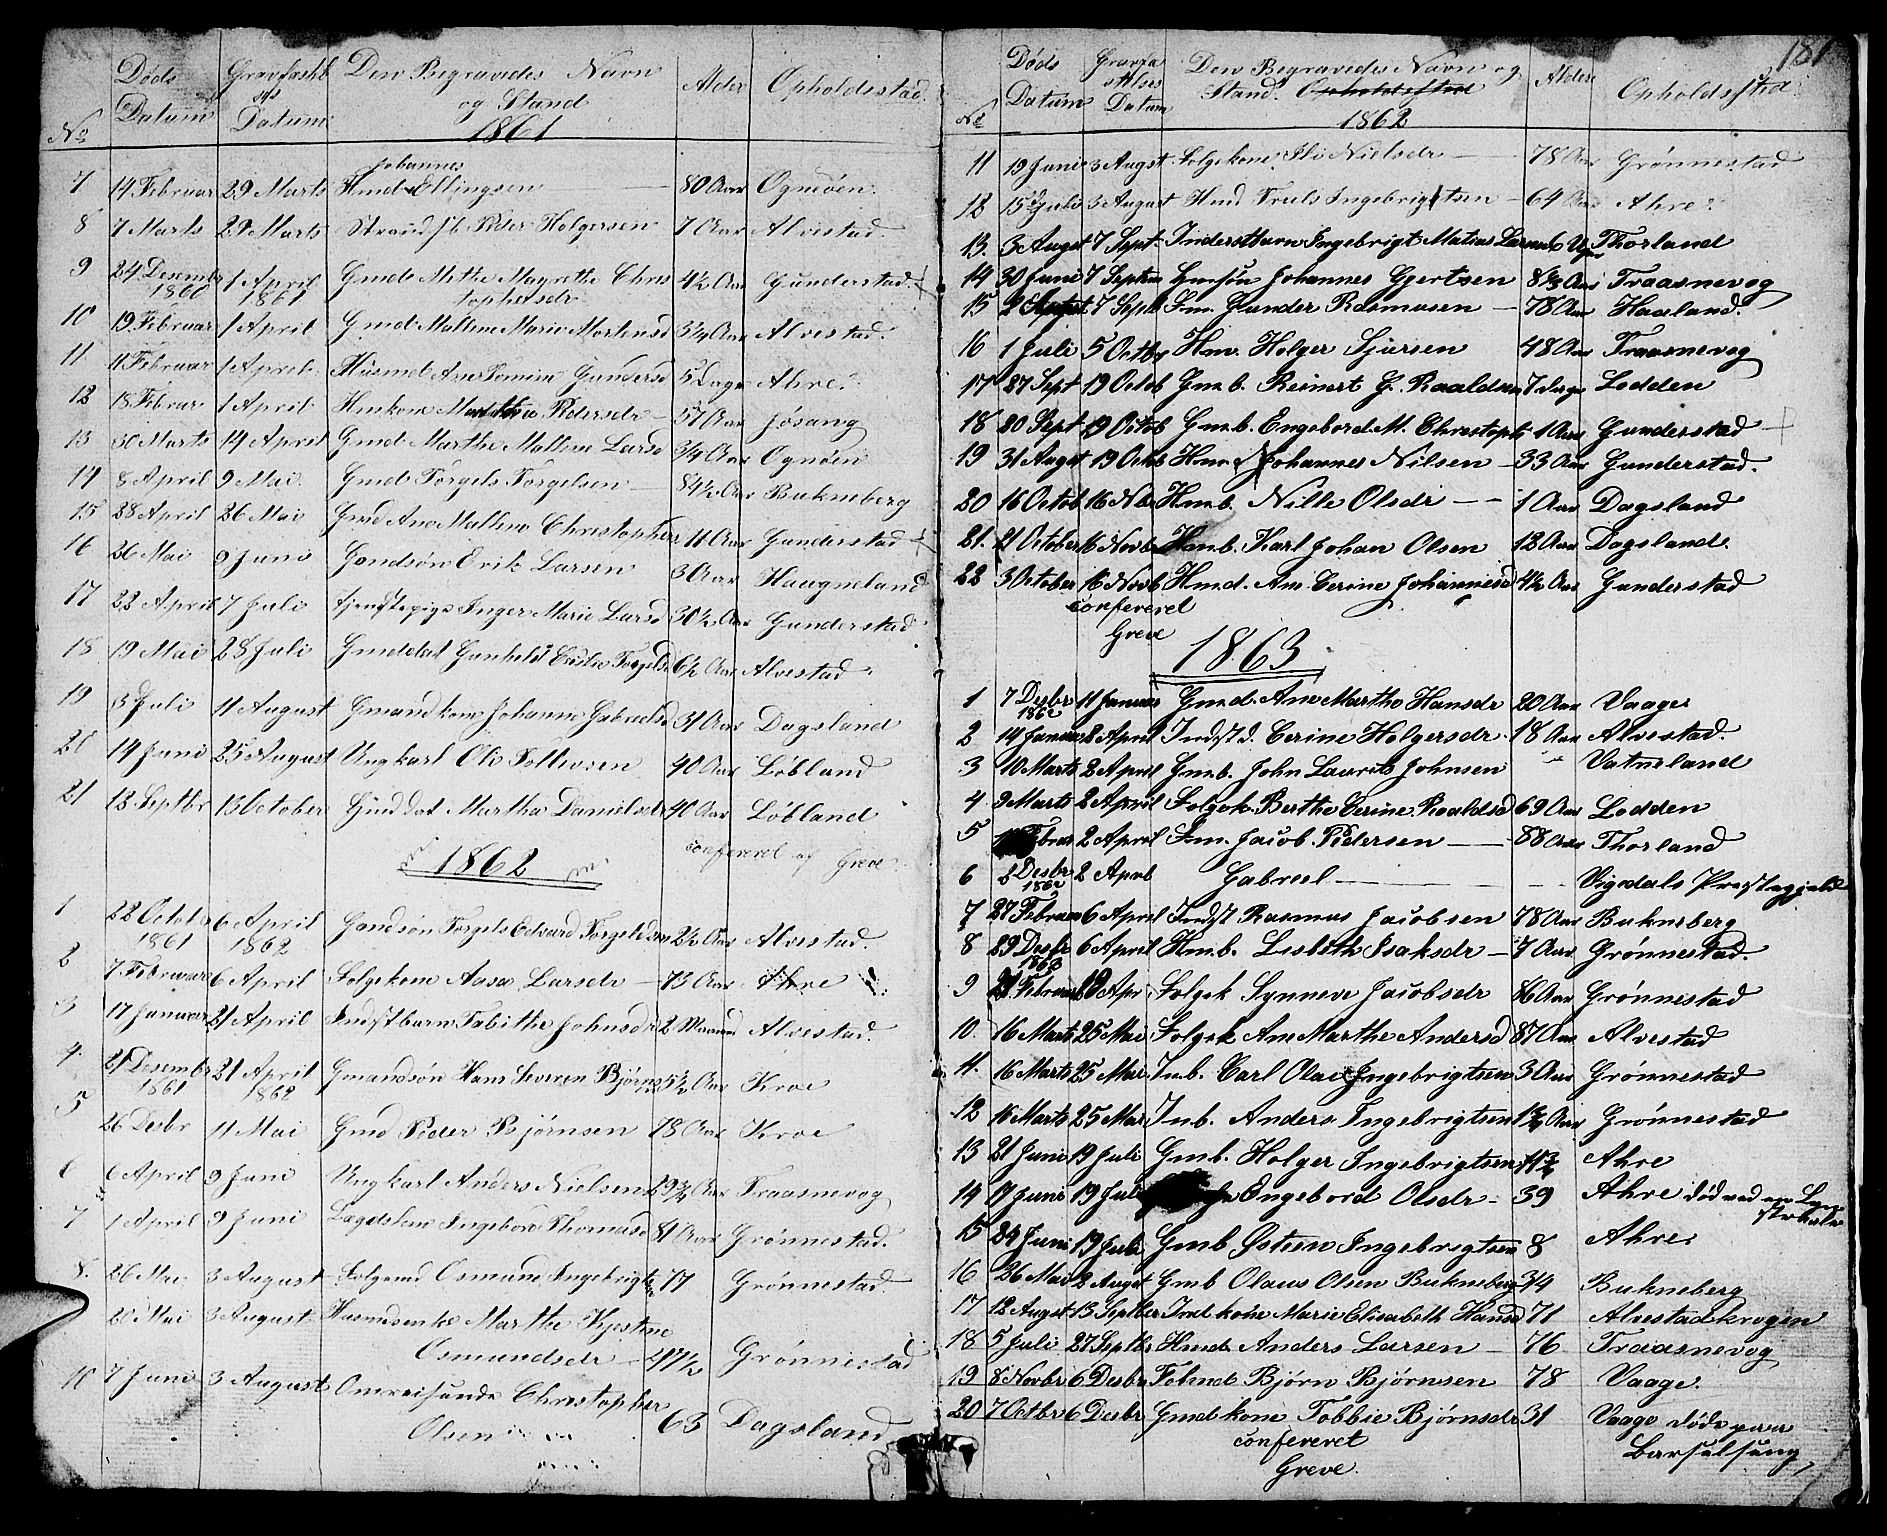 Nº Døds Datum Gravfæstelses Datum Den Begravedes Navn og Stand Alder Opholdsstad
1861
7 14 Februar 29 Marts Hmd Johannes Ellingsen 80 Aar Ognøen
8 7 Marts 29 Marts Peder Holgersen 7 Aar Alvestad
9 24 Desembr 1860 1 April 1861 Gmd Methe Magrethe Chrestophersdr 4½ Aar Gunderstad
10 19 Februar 1 April Gmd Mallene Marie Mortensd 3¼ Aar Alvestad
11 11 Februar 1 April Husmd Ane Tomine Gundersd 5 Dage Ahre
12 18 Februar 1 April Hmkone Pedersdr 57 Aar Jøsang
13 30 Marts 14 April Gmd Marthe Mallene Larsd ¾ Aar Ognøen
14 8 April 9 Mai Gmd Torgels Torgelsen 84½ Aar Bukneberg
15 28 April 26 Mai Gmd Ane Mallene Chrestophers 11 Aar Gunderstad
16 26 Mai 9 Juni Gmdsøn Erik Larsen 3 Aar Haugneland
17 22 April 7 Juli tjenstepige Inger Marie Larsd 30½ Aar Gunderstad
18 19 Mai 28 Juli Gmddat Gunhild Torgelsd 6½ Aar Alvestad
19 3 Juli 11 August Gmand kone Johanne Gabrielsd 31 Aar Dagsland
20 14 Juni 25 August Ungkarl Ole Tollevsen 40 Aar Løbland
21 13 Septbr 13 October Gmd Dat Martha Danielsdr 40 Aar Løbland
confereret af Greve
1862
1 22 Octob 1861 6 April 1862 Gmdsøn Torgels Edvard Torgeldsen 2½ Aar Alvestad
2 7 Februar 6 April Folgekone Aasa Larsdr 73 Aar Ahre
3 17 Januar 21 April Indstbarn Tabithe Johnsdr 2 Maaned Alvestad
4 21 Desembr 1861 21 April 1862 Gmandsøn Hans Severen Bjørnsen 5½ Aar Kroe
5 26 Desbr 11 Mai Gmd Peder Bjørnsen 78 Aar Kroe
6 6 April 9 Juni Ungkarl Anders Nielsen 29¾ Aar Traasnevog
7 1 April 9 Juni Lægdslem Ingebor Thomasd 81 Aar Grønnestad
8 26 Mai 3 August Folgemd Osmund Ingebrigts 77 Grønnestad
20 Mai 3 August Husmdsenke Marthe Kjestine Osmundsdr 47½ Grønnestad
10 7 Juni 3 August Omreisende Christopher Olsen 63 Dagsland
181
Nº Døds Datum Gravfæstelses Datum Den Begravedes Navn og Stand Opholdsstad Alder Opholdsstad
1862
11 19 Juni 3 Augst Folgekone Nielsdr 78 Aar Grønnestad
12 15 Juli 3 August Hmd Truls Ingebrigtsen 64 Aar Ahre
13 3 Augst 7 Sept Inderstbarn Ingebrigt Matias Larsen 6 Uger Thorland
14 30 Juni 7 Septem Johannes Gjertsen 8 Aar Traasnevog
15 7 Septb Fm. Gunder Rasmusen 78 Aar Haaland
16 1 Juli 5 Octbr Hm. Holger Sjursen 48 Aar Traasnevog
17 27 Sept 19 Octob Gmb. Reinert G. Raaldsen 7 dage Lodden
18 20 Sept 19 Octob Gmb. Engebord M. Chrestoph 1 Aar Gunderstad
19 31 Augst 19 Octb Hm. Johannes Nilsen 33 Aar Gunderstad
20 16 Octob 16 Nov Hmb. Nille Olsdr 1 Aar Dagsland
21 21 October 16 Novb Hmb. Karl Johan Olsen 12 Aar Dagsland
22 3 October 16 Novb Hmd. Ane Cerine Johannesd 4½ Aar Gunderstad
confereret
Greve
1863
1 7 Desbr 1862 11 Januar Gmd. Ane Martha Hansdr 20 Aar Vaage
2 14 Januar 2 April Indst d. Cerine Holgersdr 18 Aar Alvestad
3 10 Marts 2 April Gmb. John Laurits Johnsen Vatneland
4 9 Marts 2 April Folgek. Berthe Cerine Roaldsd 69 Aar Lodden
5 Februar 2 April Fm. Jacob Pedersen 88 Aar Thorland
6 2 Desbr 1862 2 April Gabriel Vigedals Prestegjeld
7 27 Februar 6 April Indst Rasmus Jacobsen 78 Aar Bukneberg
8 29 Desbr 6 April Hmb. Lisbeth Isaksdr 7 Aar Grønnestad
9 21 Februar Apr Folgek Synneve Jacobsdr 86 Aar Grønnestad
10 16 Marts 25 Mai Folgek Ane Marthe Andersd 87 Aar Alvestad
11 16 Marts 25 Mai Inb. Carl Olai Ingebrigtsen 3 Aar Grønnestad
12 16 Marts 25 Mai Inb. Anders Ingebrigtsen Aar Grønnestad
13 21 Juni 19 Juli Gmb. Holger Ingebrigtsen Ahre
14 17 Juni 19 Juli Engebord Olsdr 39 Ahre død ved en Lynstraale
15 24 Juni 19 Juli Gmb Østen Ingebrigtsen 8 Ahre
16 26 Mai 2 Augst Gmb Olaus Olsen Bukneberg Bukneberg
17 12 Augst 13 Septber Ind kone Marie Elisabeth Hansd 71 Alvestadkrogen
18 5 Juli 27 Septbr Hmd Anders Larsen 76 Traasnevog
19 8 Novbr 6 Desbr Folmd Bjørn Bjørnsen 78 Vaage
20 7 Octbr 6 Desbr Gmd kone Tobbie Bjørnsdr 31 Vaage døde paa Barselseng
confereret
Greve